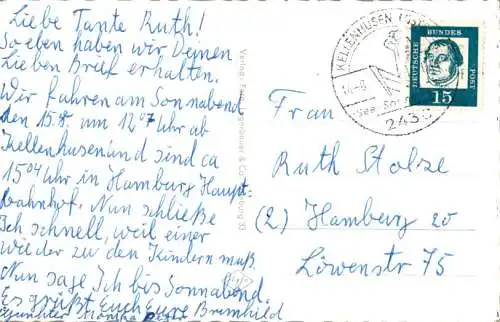 Liebe Tante Ruth!
So eben haben wir Deinen
Lieben Brief erhalten.
Wir fahren am Sonnabend
den 15.8. um 12⁰⁷ Uhr ab
Kellenhusen und sind ca
15⁰⁴ Uhr in Hamburg Haupt-
bahnhof. Nun schließe
Ich schnell, weil einer
wieder zu den Kindern muß.
Nun sage Ich bis Sonnabend.
Es grüßt Euch Eure Bremhild
Günther Monika
Verlag
KELLENHUSEN
243
DEUTSCHE BUNDESPOST
15
Frau
Ruth Stolze
(2) Hamburg 20
Löwenstr 75